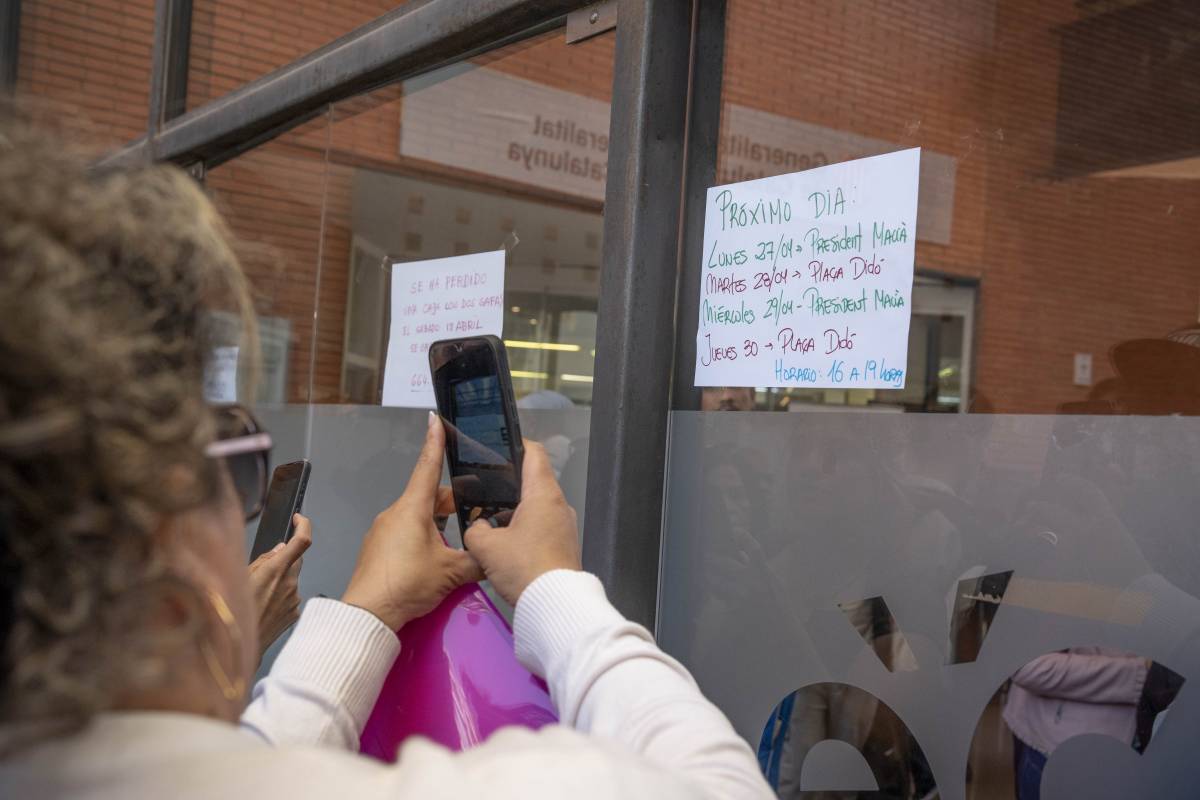 Generalitat
Catalunya
Generalitat
SE HA PERDIDO
UNA CAJA CON DOS GAFAS
EL SÁBADO 18 ABRIL
664
PRÓXIMO DIA:
LUNES 27/04 → PRESIDENT MACIÀ
MARTES 28/04 → PLAÇA DIDÓ
MIÉRCOLES 29/04 - PRESIDENT MACIÀ
JUEVES 30 → PLAÇA DIDÓ
HORARIO: 16 A 19 horas